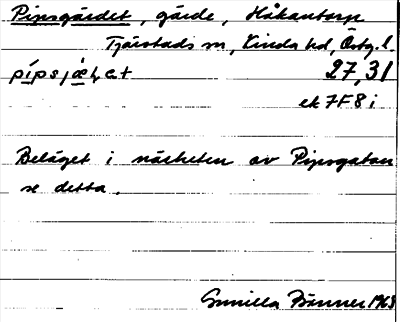 Pipsgärdet, gärde, Håkantorp
Tjärstads sn, Kinda hd, Östg. l.
27,31
ek 7F8i
Beläget i närheten av Pipsgatan
se detta.
Gunilla Bönner 1963